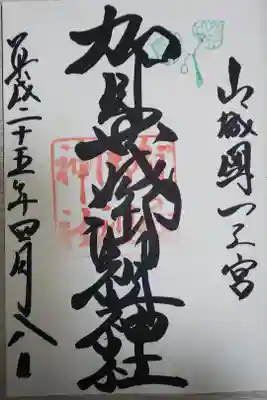 山城國一之宮
賀茂御祖神社
平成二十五年四月八日